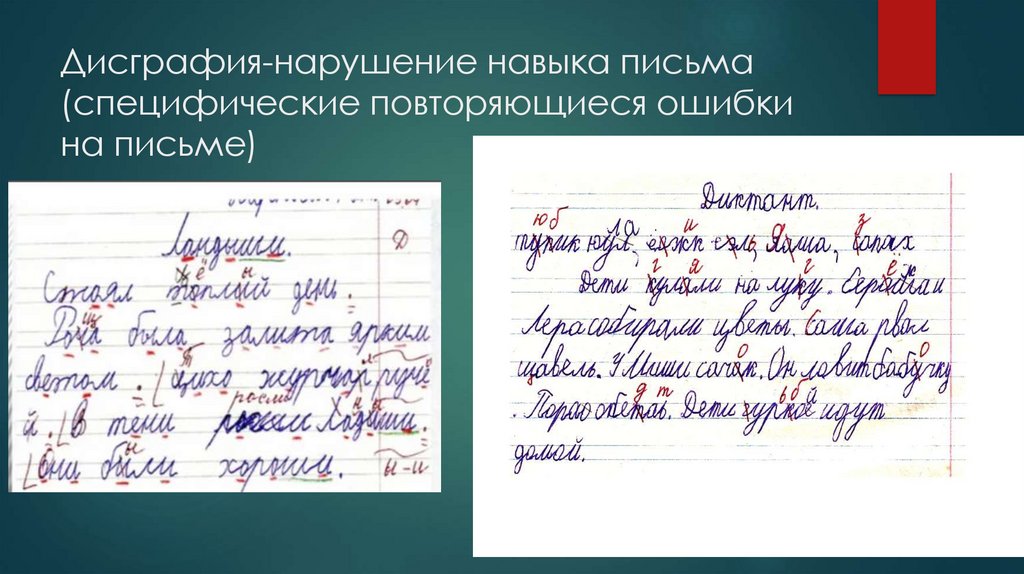 Дисграфия-нарушение навыка письма
(специфические повторяющиеся ошибки
на письме)
Ландыши.
Стоял тёплый день.
Роща была залита ярким
светом. Цихо журочал ручё
й. В тени росли Хадыши.
Они были хороши. ы-и
Диктант.
тупик юул, ёжк ель, Яаша, сапах
Дети кулали на луку. Серёжа и
Лера собирали цветы. Саша рвал
щавель. У Миши сачак. Он ловит бабучку
. Пора обетать. Дети зуркое идут
домой.